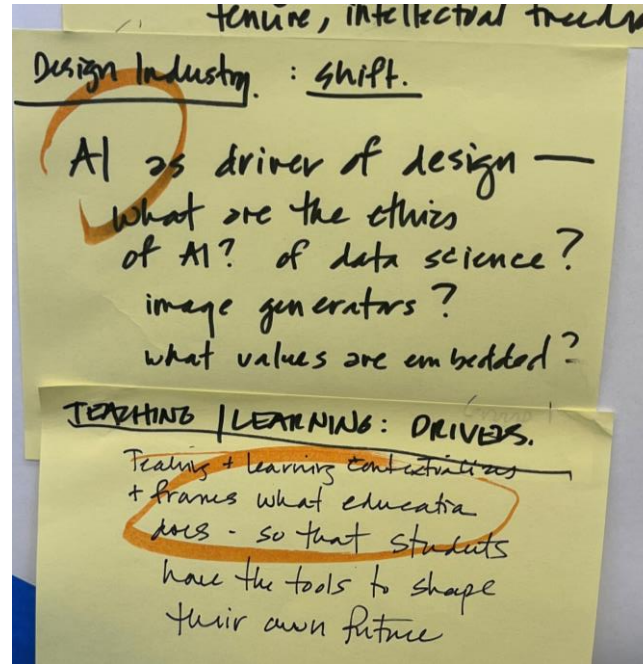 tenure, intellectual freedo
Design Industry. : shift.
AI as driver of design —
what are the ethics
of AI? of data science?
image generators?
what values are embedded?
TEACHING / LEARNING: DRIVERS.
Teaching + learning contextualizes
+ frames what education
does - so that students
have the tools to shape
their own future